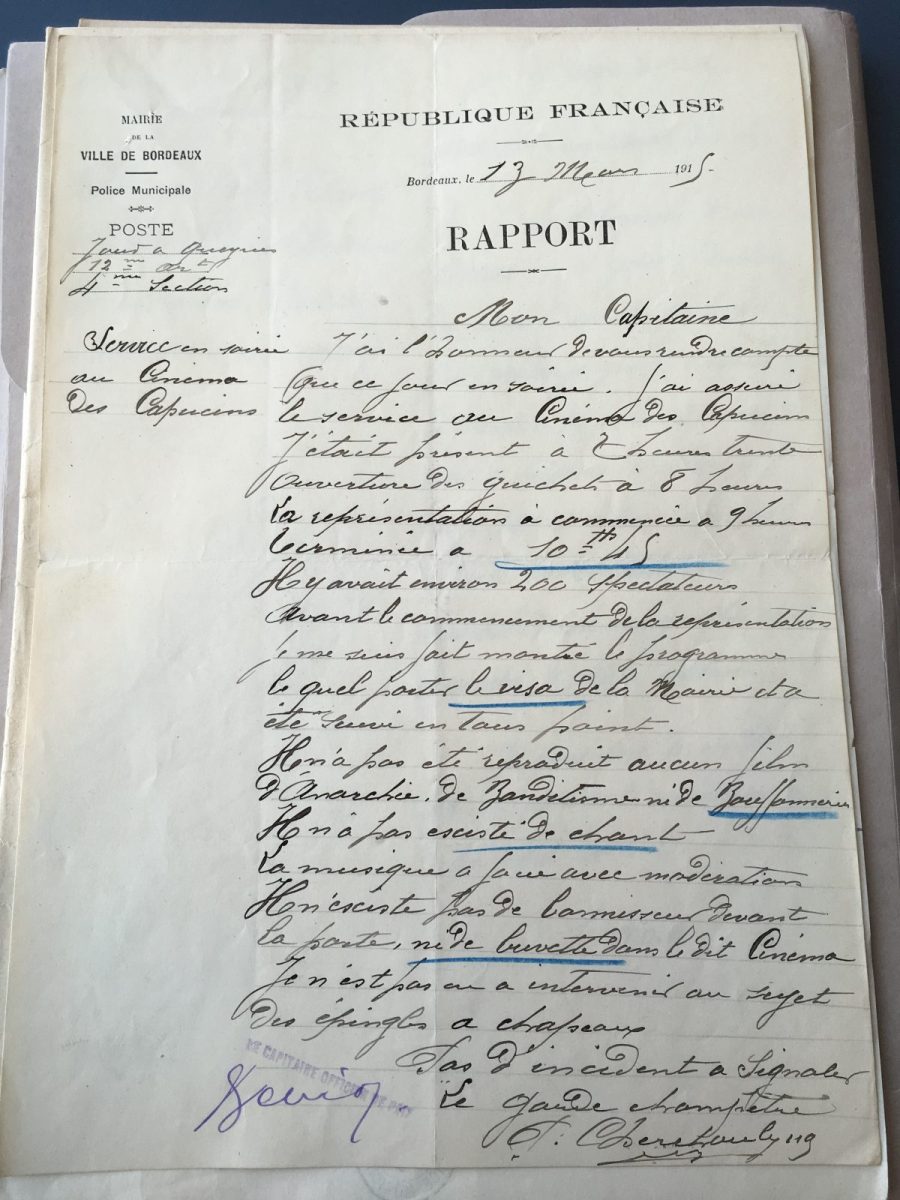 MAIRIE
DE LA
VILLE DE BORDEAUX
Police Municipale
POSTE
12me art
4me Section
RÉPUBLIQUE FRANÇAISE
Bordeaux, le 13 Mars 1915.
RAPPORT
Service en soirée
au Cinéma
des Capucins
Mon Capitaine
J'ai l'honneur de vous rendre compte
que ce jour en soirée. j'ai assuré
le service au Cinéma des Capucins
J'était présent à 7 heures trente
ouverture des guichets à 8 heures
La représentation à commencée a 9 heures
terminée a 10 Hs 45
Il y avait environ 200 spectateurs
avant le commencement de la représentation
je me suis fait montré le programme
le quel porter le visa de la Mairie et a
été suivi en tous point.
Il n'à pas été reproduit aucun film
d'Anarchie. de Banditisme ni de Bouffonnerie
Il n'à pas esciste de chant
La musique a joué avec modération
Il n'esciste pas de bonnisseur devant
la porte, ni de buvette dans le dit Cinéma
Je n'est pas eu a intervenir au sujet
des épingles a chapeaux
Pas d'incident a Signaler
Le garde champêtre
LE CAPITAINE OFFICIER DE PAIX